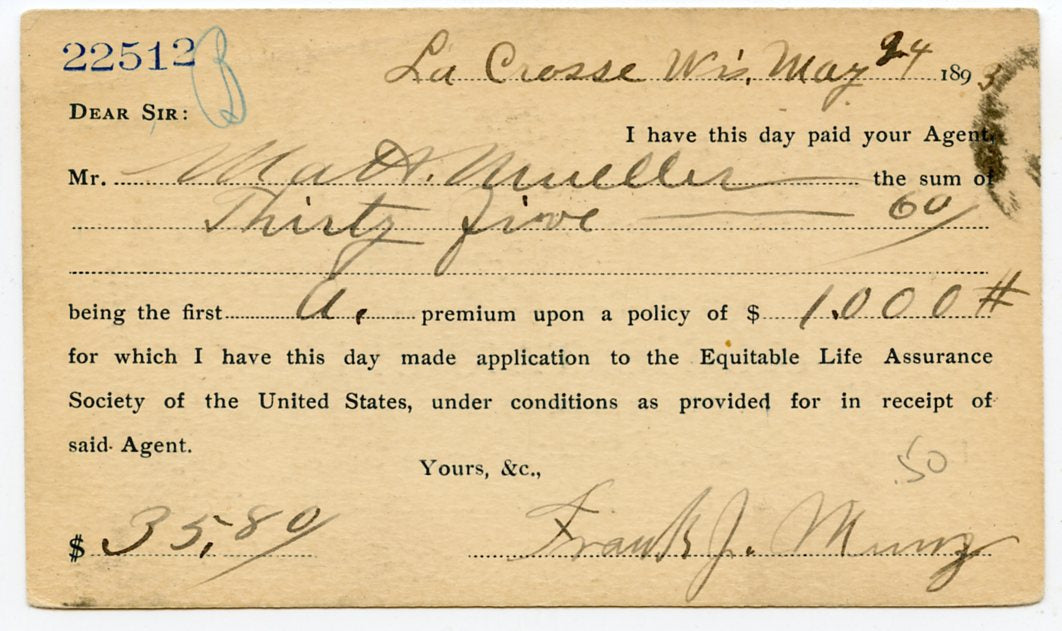 22512 B
La Crosse Wis, May 24 1893
DEAR SIR:
I have this day paid your Agent,
Mr. Mat. Mueller the sum of
Thirty five 60
being the first a. premium upon a policy of $ 1.000 #
for which I have this day made application to the Equitable Life Assurance
Society of the United States, under conditions as provided for in receipt of
said Agent.
Yours, &c.,
.50
$ 35,80 Frank J. Munz